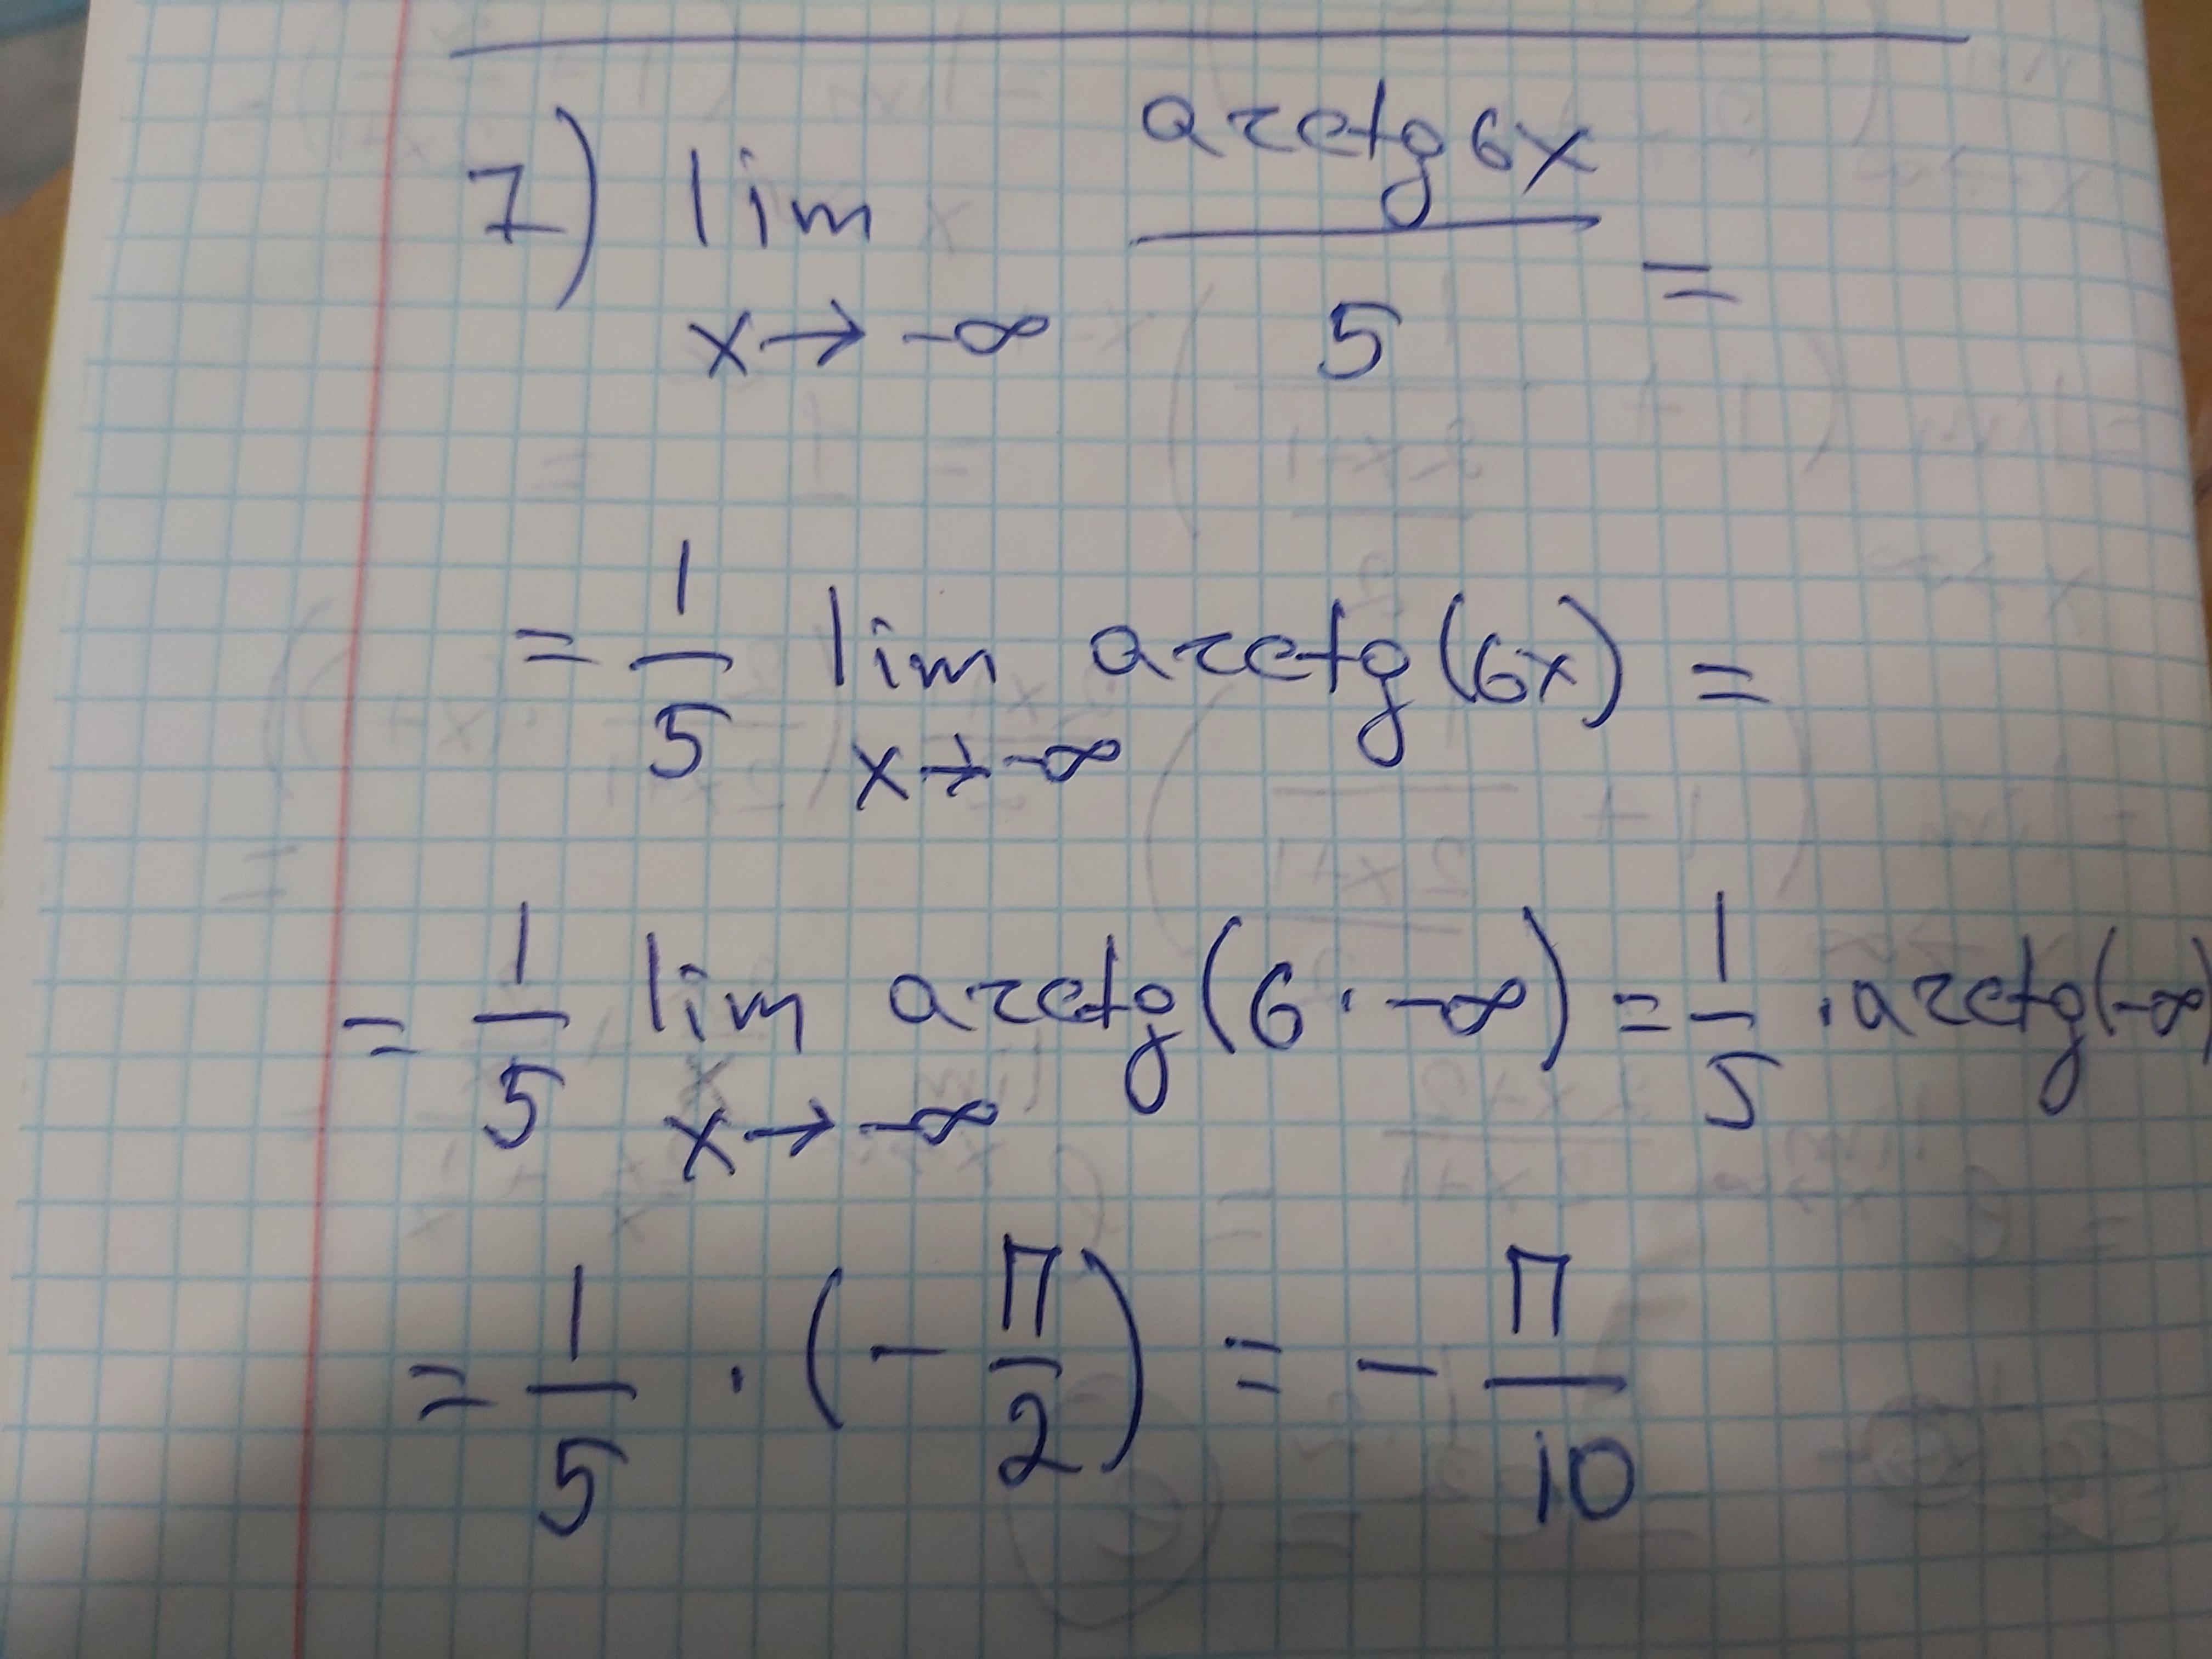 7) lim arctg 6x / 5 =
x → -∞
= 1/5 lim arctg(6x) =
x → -∞
= 1/5 lim arctg(6 · -∞) = 1/5 · arctg(-∞)
x → -∞
= 1/5 · (- π/2) = - π/10